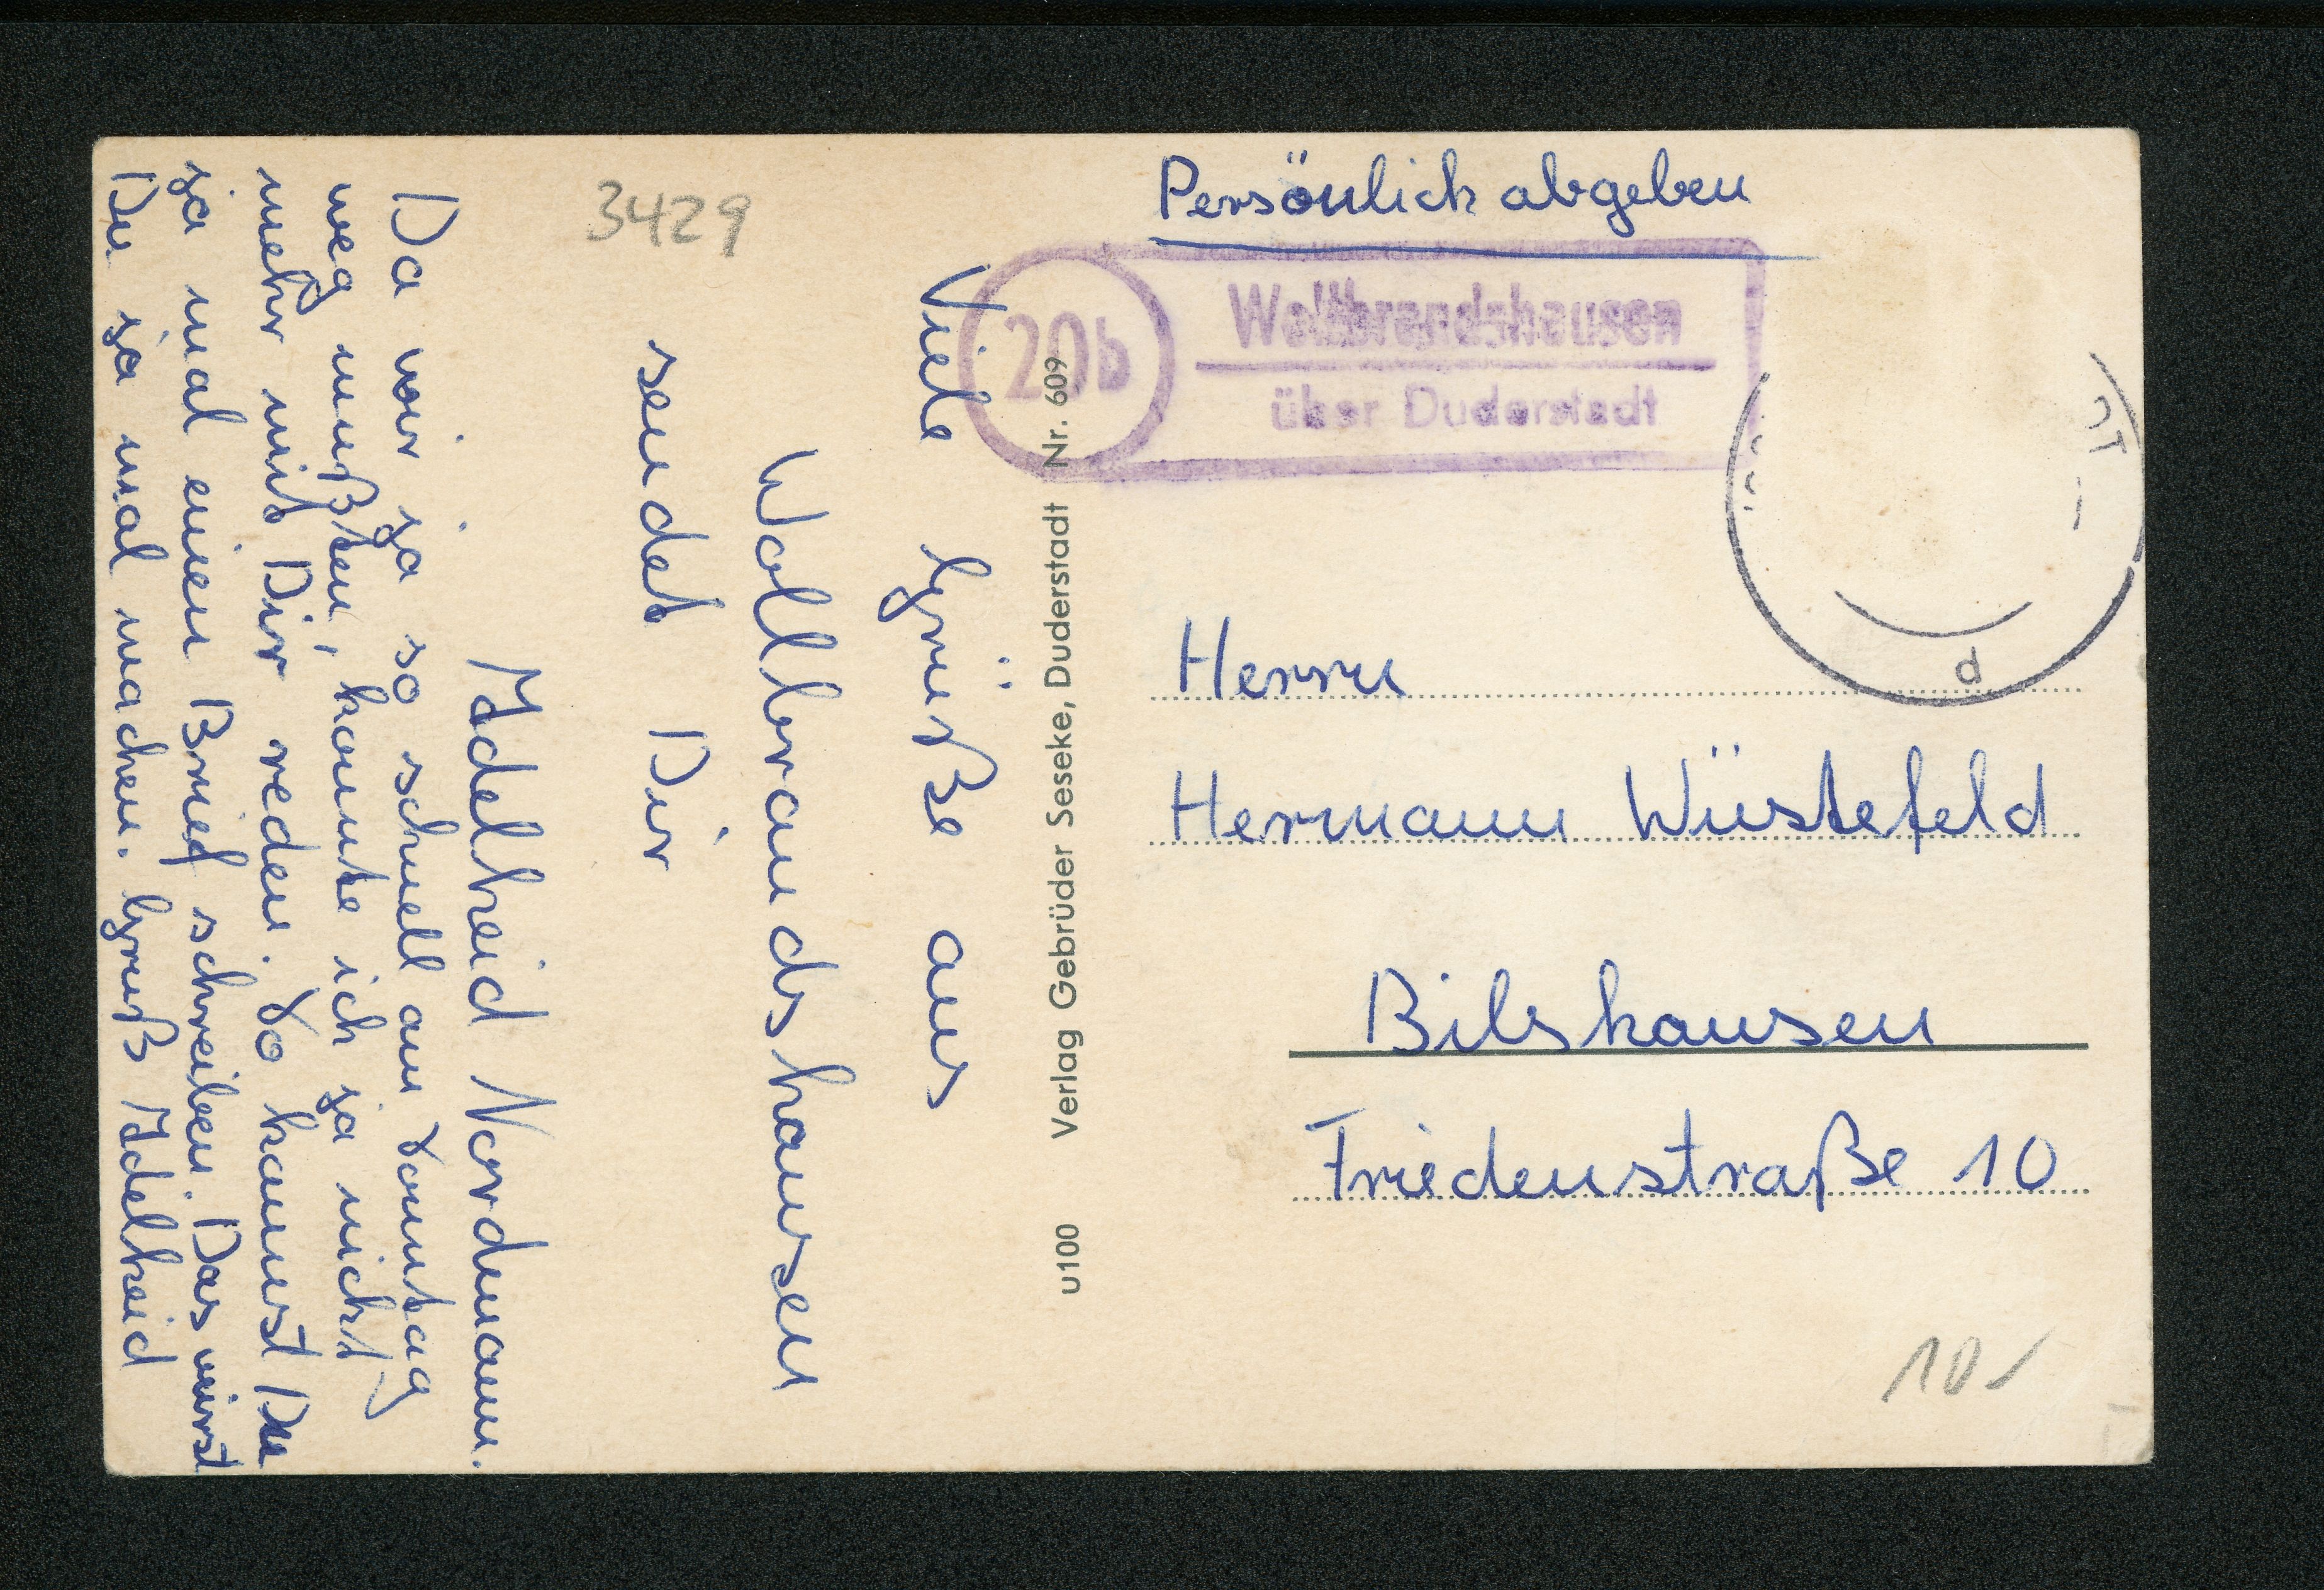 Viele Grüße aus
Wollbrandshausen
sendet Dir
Adelheid Nordmann.
Da wir ja so schnell am Sonntag
weg mußten, konnte ich ja nicht
mehr mit Dir reden. So kannst Du
ja mal einen Brief schreiben. Das wirst
Du ja mal machen. Gruß Adelheid
3429
Verlag Gebrüder Seseke, Duderstadt Nr. 609
u100
Persönlich abgeben
20b
Wollbrandshausen
über Duderstadt
d
Herrn
Hermann Wüstefeld
Bilshausen
Friedenstraße 10
10